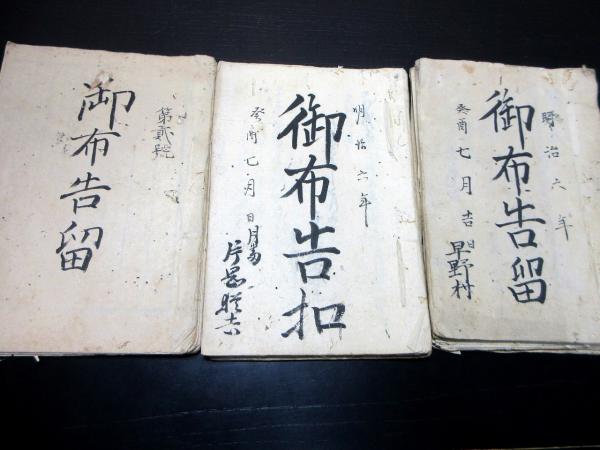 明治六年
御布告留
癸酉七月吉日
早野村
明治六年
御布告扣
癸酉七月日
第貳號
御布告留